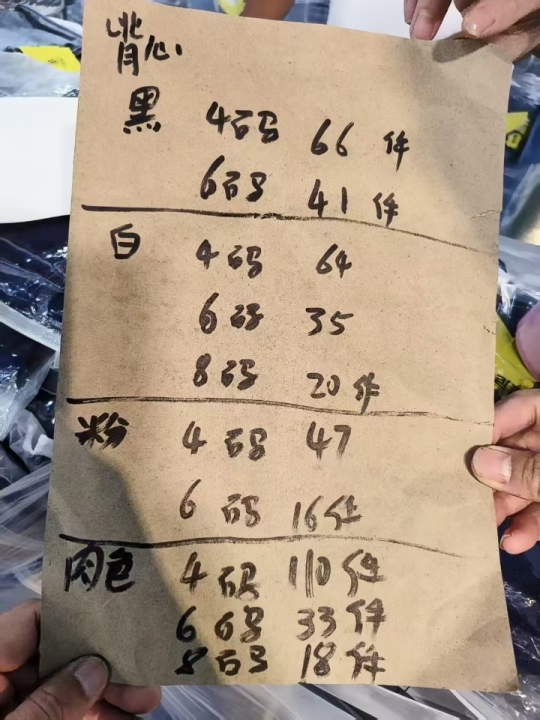 背心
黑 4码 66 件
6码 41 件
白 4码 64
6码 35
8码 20件
粉 4码 47
6码 16件
肉色 4码 110件
6码 33件
8码 18件